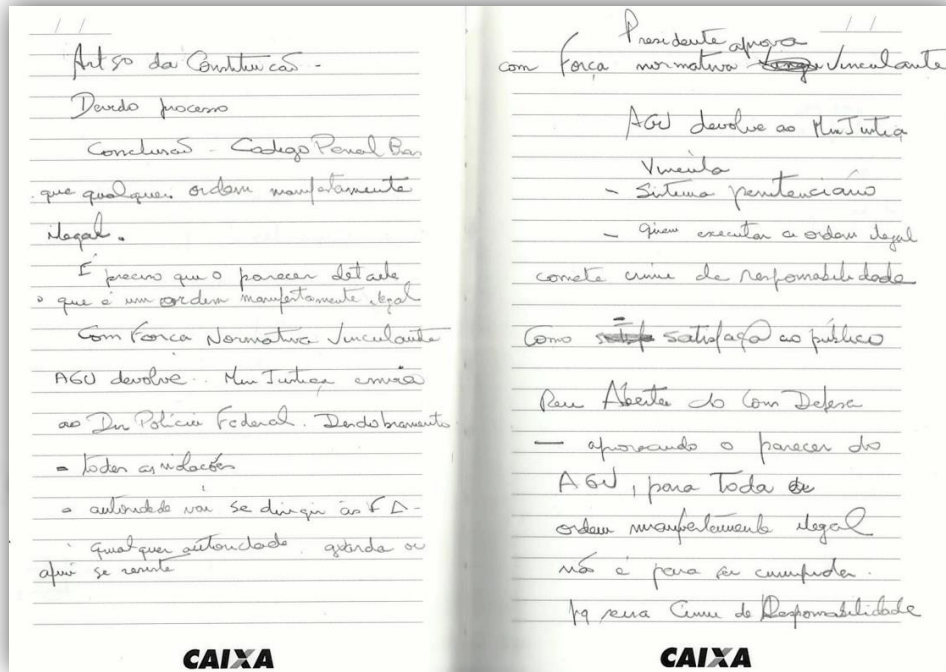 / /
Art 5º da Constituicão -
Devido processo
Conclusão - Codigo Penal
que qualquer ordem manifestamente
ilegal.
É preciso que o parecer detale
o que é um ordem manifestamente ilegal
Com Forca Normativa Vinculante
AGU devolve. Min Justiça envia
ao Dir Polícia Federal. Desdobramento
- todas as violações
autoridade vai se dirigir às FA-
Qualquer autoridade,
se sente
CAIXA
/ /
Presidente aprova
com Força normativa Vinculante
AGU devolve ao Min Justiça
Vincula
- Sistema penitenciário
- quem executar a ordem ilegal
comete crime de responsabilidade
Como satisfaça ao público
Reu Aberta do Com Defesa
- aprovando o parecer do
AGU, para Toda
ordem manifestamente ilegal
não é para ser cumprida.
pq seria Crime de Responsabilidade
CAIXA